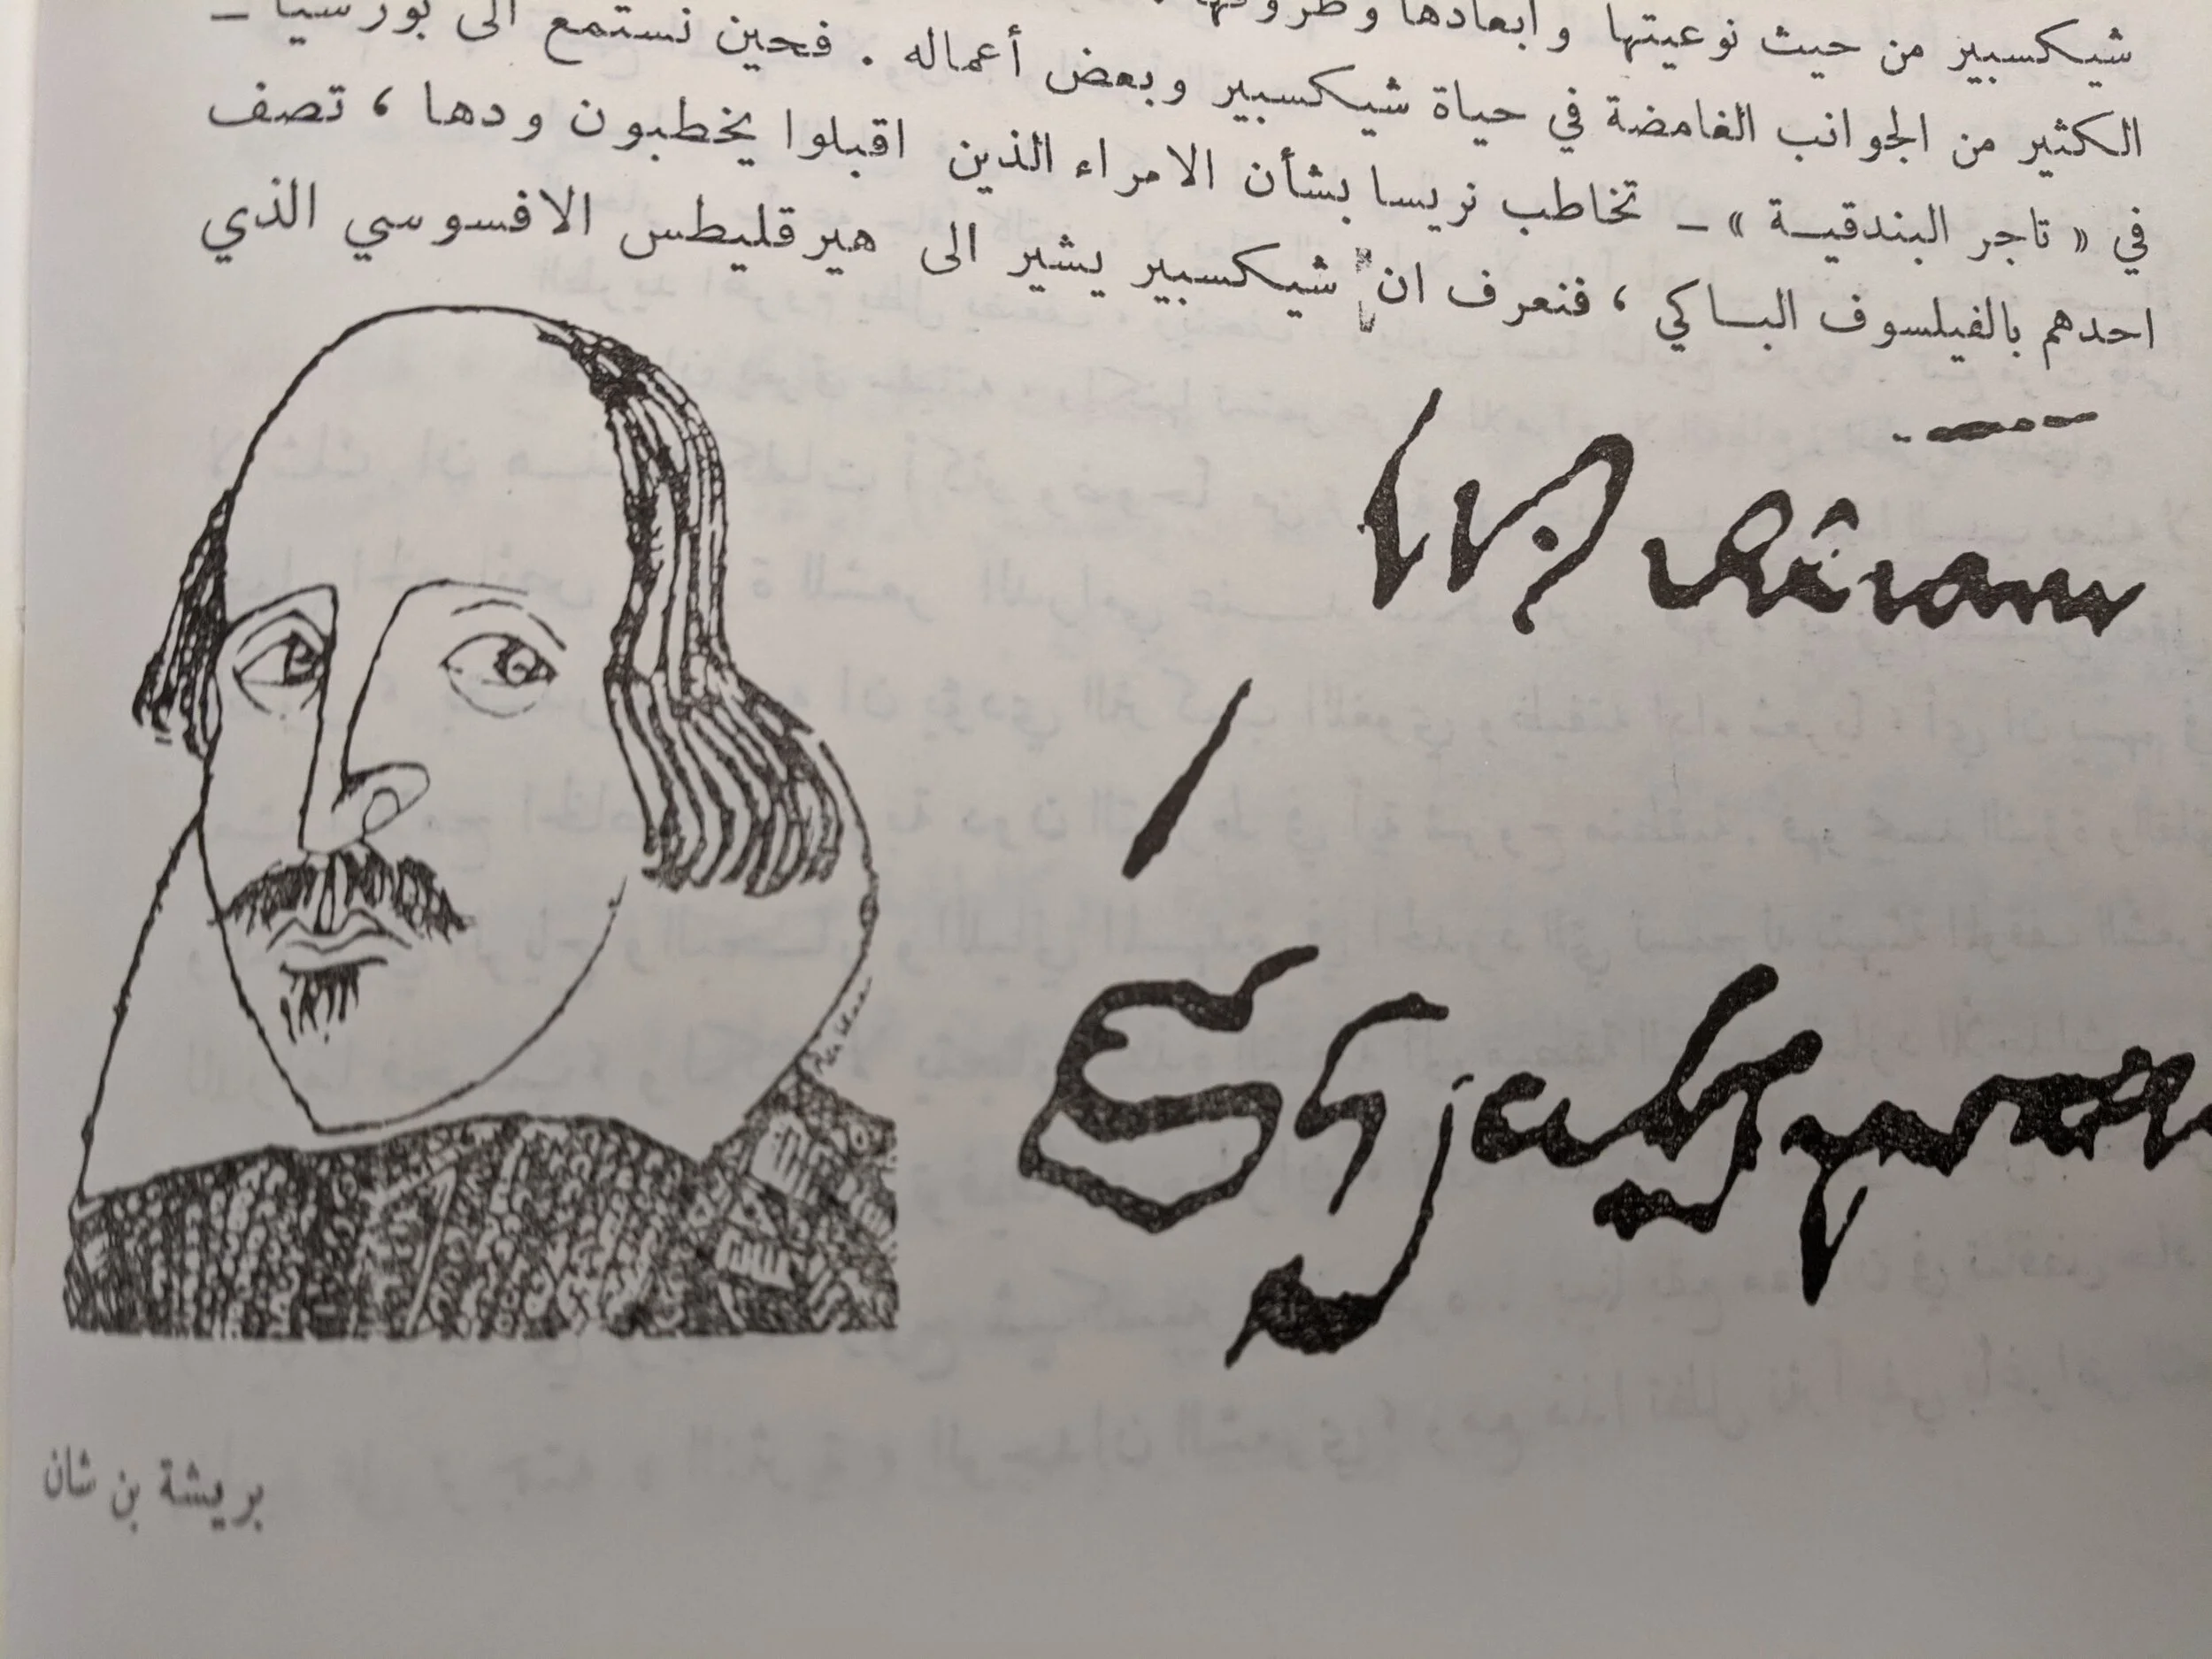 شيكسبير من حيث نوعيتها وابعادها وظروفها .
الكثير من الجوانب الغامضة في حياة شيكسبير وبعض أعماله . فحين نستمع الى بورسيا –
في « تاجر البندقيـة » – تخاطب نريسا بشأن الامراء الذين اقبلوا يخطبون ودها ، تصف
احدهم بالفيلسوف البـاكي ، فنعرف ان شيكسبير يشير الى هيرقليطس الافسوسي الذي
بريشة بن شان